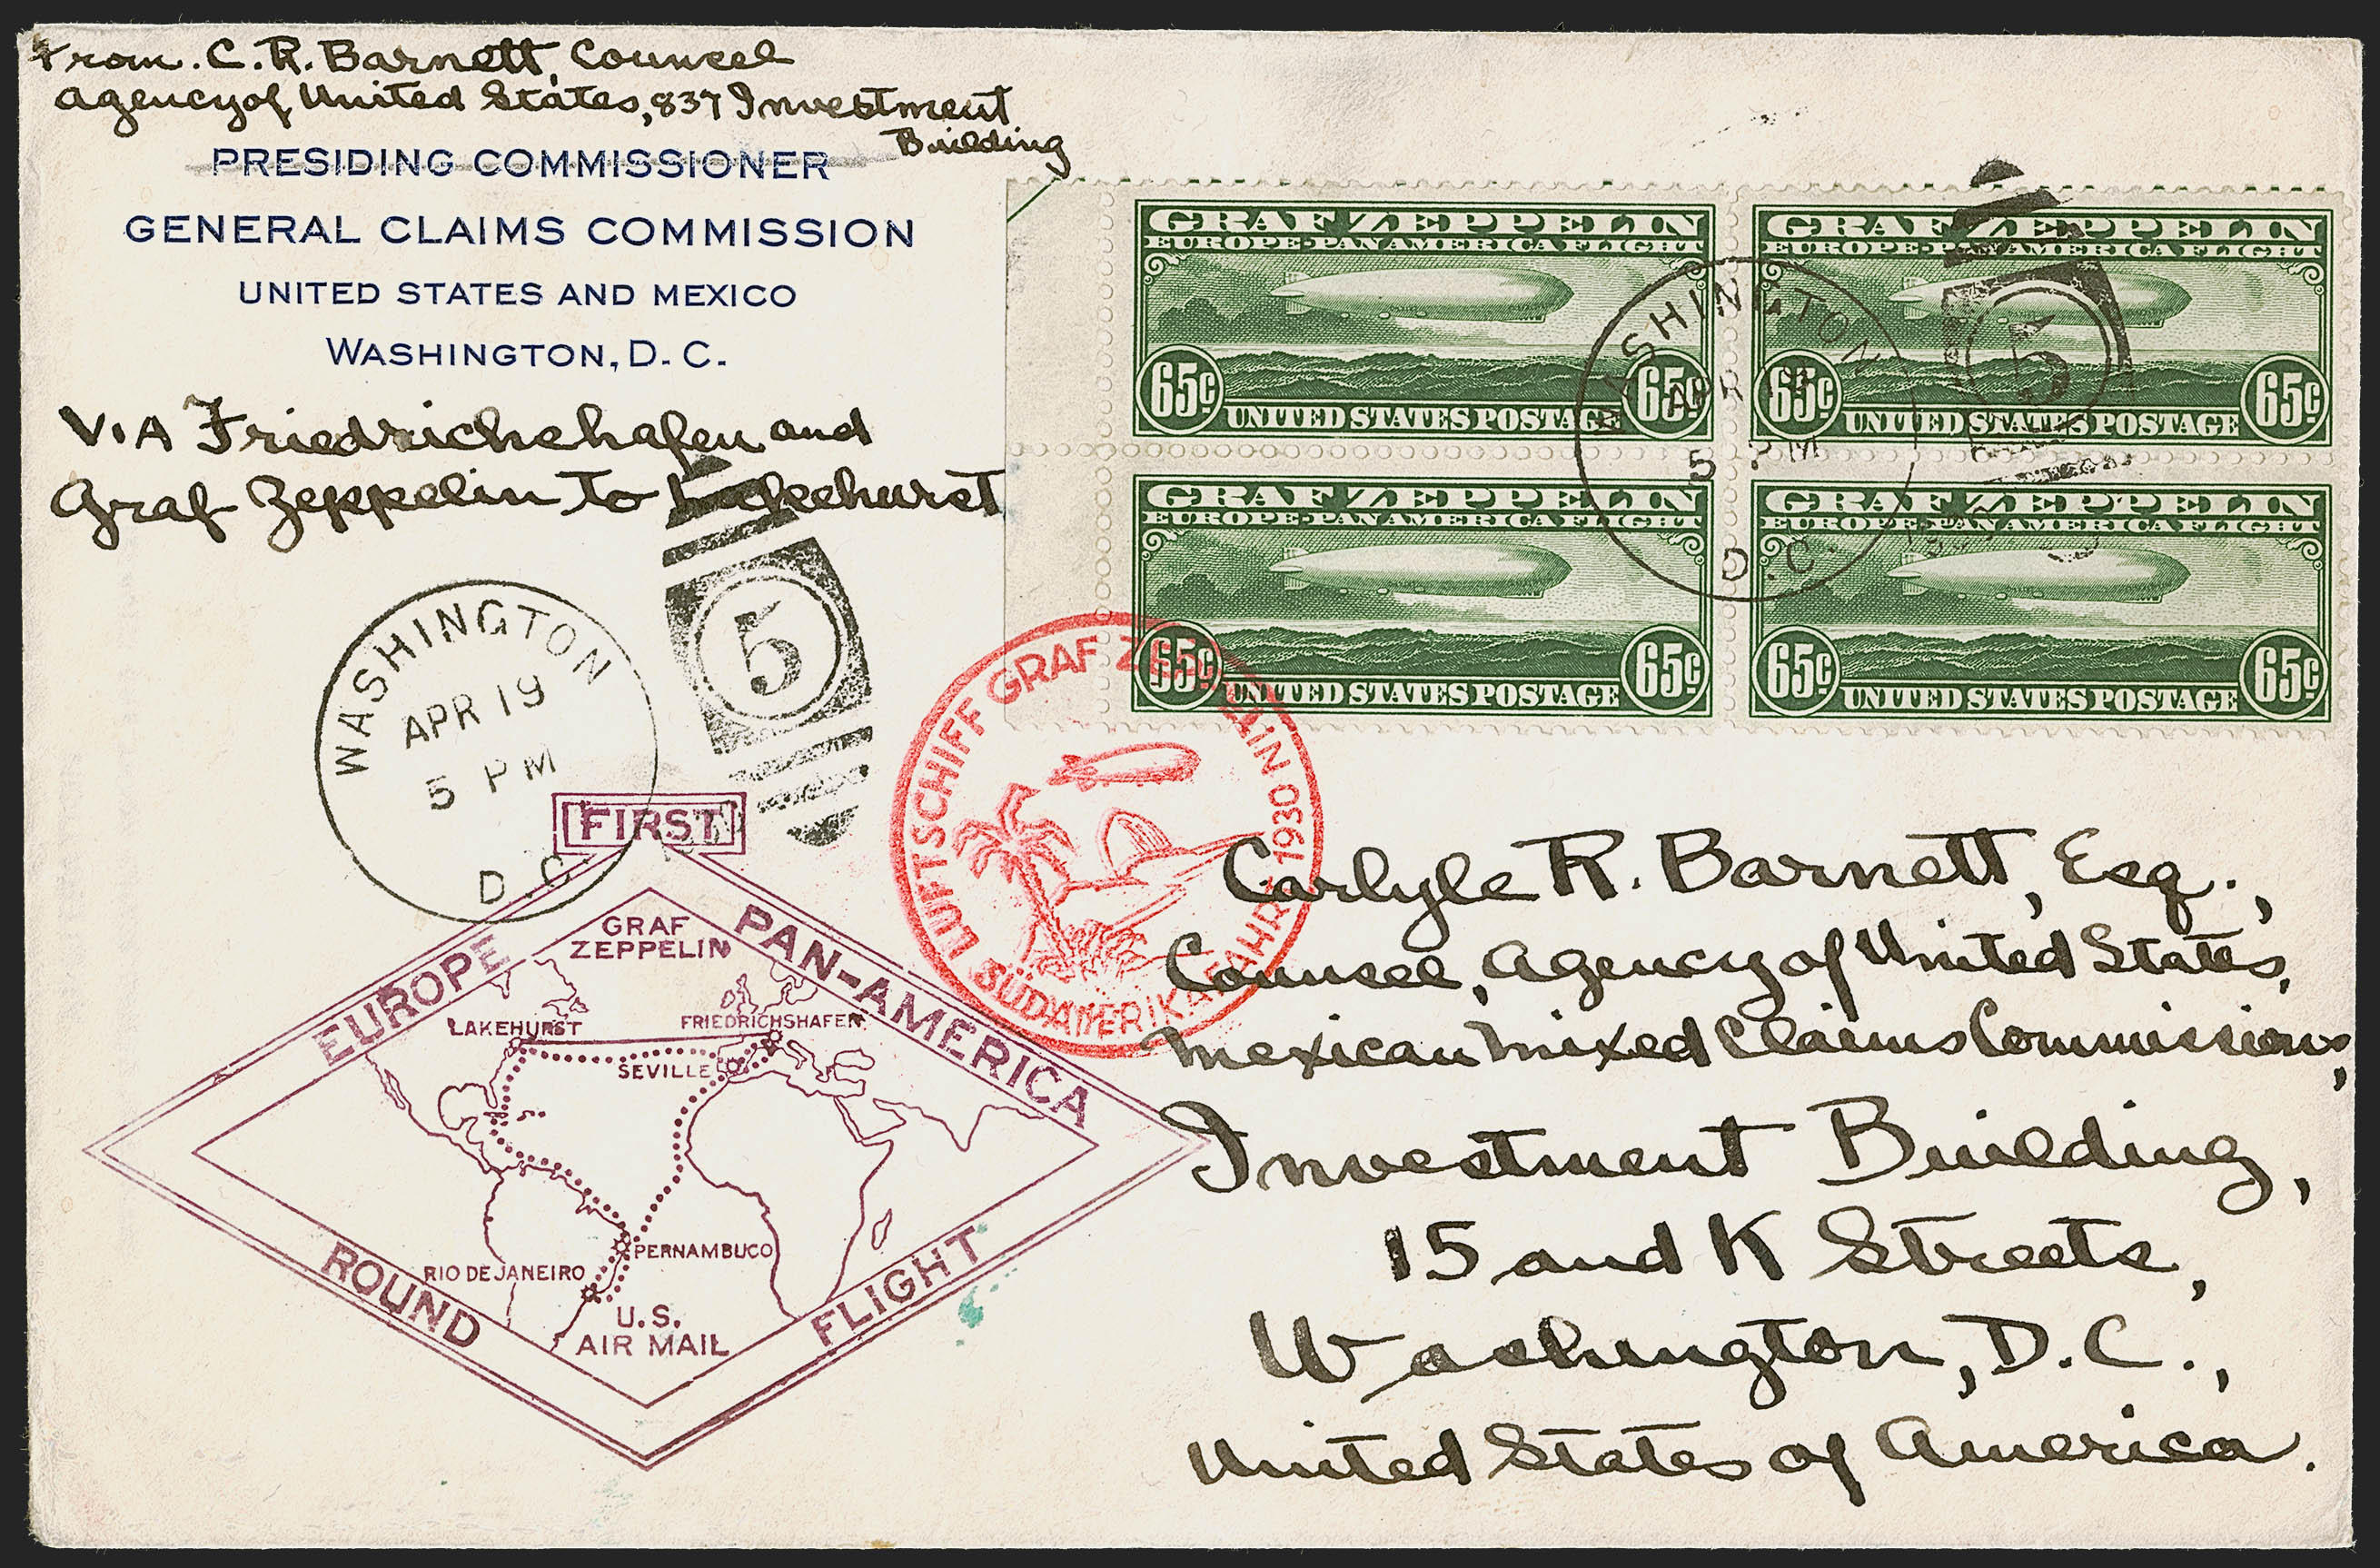 From. C. R. Barnett, Counsel
Agency of United States, 837 Investment
Building
PRESIDING COMMISSIONER
GENERAL CLAIMS COMMISSION
UNITED STATES AND MEXICO
WASHINGTON, D. C.
VIA Friedrichshafen and
Graf Zeppelin to Lakehurst
GRAF ZEPPELIN
EUROPE-PAN AMERICA FLIGHT
65c UNITED STATES POSTAGE 65c
GRAF ZEPPELIN
EUROPE-PAN AMERICA FLIGHT
65c UNITED STATES POSTAGE 65c
GRAF ZEPPELIN
EUROPE-PAN AMERICA FLIGHT
65c UNITED STATES POSTAGE 65c
GRAF ZEPPELIN
EUROPE-PAN AMERICA FLIGHT
65c UNITED STATES POSTAGE 65c
WASHINGTON
APR 19
5 PM
D.C.
5
WASHINGTON
APR 19
5 PM
D.C.
5
LUFTSCHIFF GRAF ZEPPELIN 1930
SÜDAMERIKAFAHRT
FIRST
EUROPE
PAN-AMERICA
ROUND
FLIGHT
GRAF
ZEPPELIN
LAKEHURST
FRIEDRICHSHAFEN
SEVILLE
PERNAMBUCO
RIO DE JANEIRO
U.S.
AIR MAIL
Carlyle R. Barnett, Esq.,
Counsel, Agency of United States,
Mexican Mixed Claims Commissions,
Investment Building,
15 and K Streets,
Washington, D.C.,
United States of America.